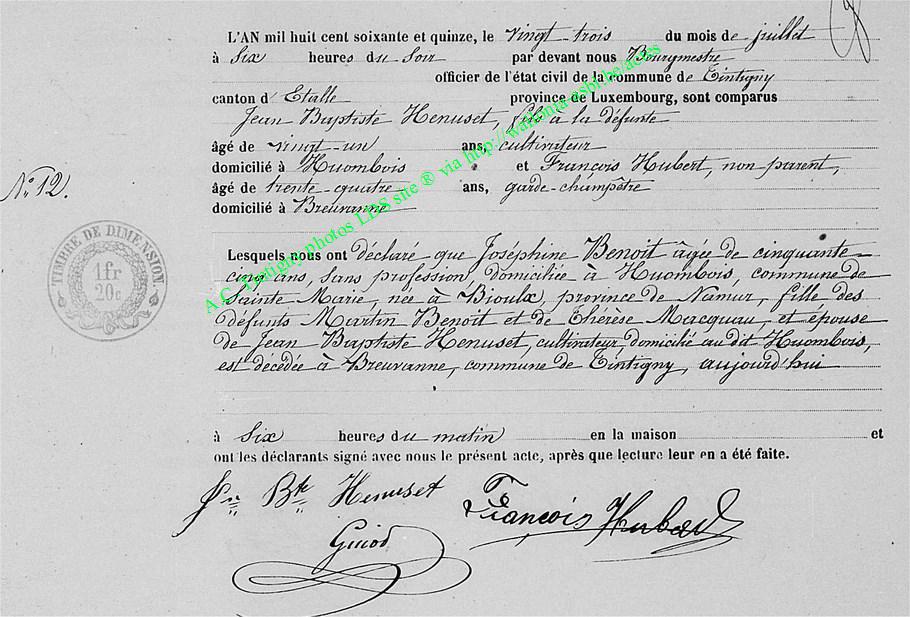 L'AN mil huit cent soixante et quinze, le vingt-trois du mois de juillet
à six heures du soir par devant nous Bourgmestre
officier de l'état civil de la commune de Tintigny
canton d'Etalle province de Luxembourg, sont comparus
Jean Baptiste Henuset, fils à la défunte
âgé de vingt-un ans, cultivateur
domicilié à Huombois et François Hubert, non parent,
âgé de trente-quatre ans, garde-champêtre
domicilié à Breuvanne
N° 12.
TIMBRE DE DIMENSION.
1 fr
20c
Lesquels nous ont déclaré que Joséphine Benoit âgée de cinquante-
cinq ans, sans profession, domiciliée à Huombois, commune de
Sainte Marie, née à Bioulx, province de Namur, fille des
défunts Martin Benoit et de Thérèse Macquau, et épouse
de Jean Baptiste Henuset, cultivateur, domicilié au dit Huombois,
est décédée à Breuvanne, commune de Tintigny, aujourd'hui
à six heures du matin en la maison et
ont les déclarants signé avec nous le présent acte, après que lecture leur en a été faite.
Jn Bte Henuset
François Hubert
Guiod
A.C. Tintigny photos LDS site ® via http://wallonia-asbl.be/actes